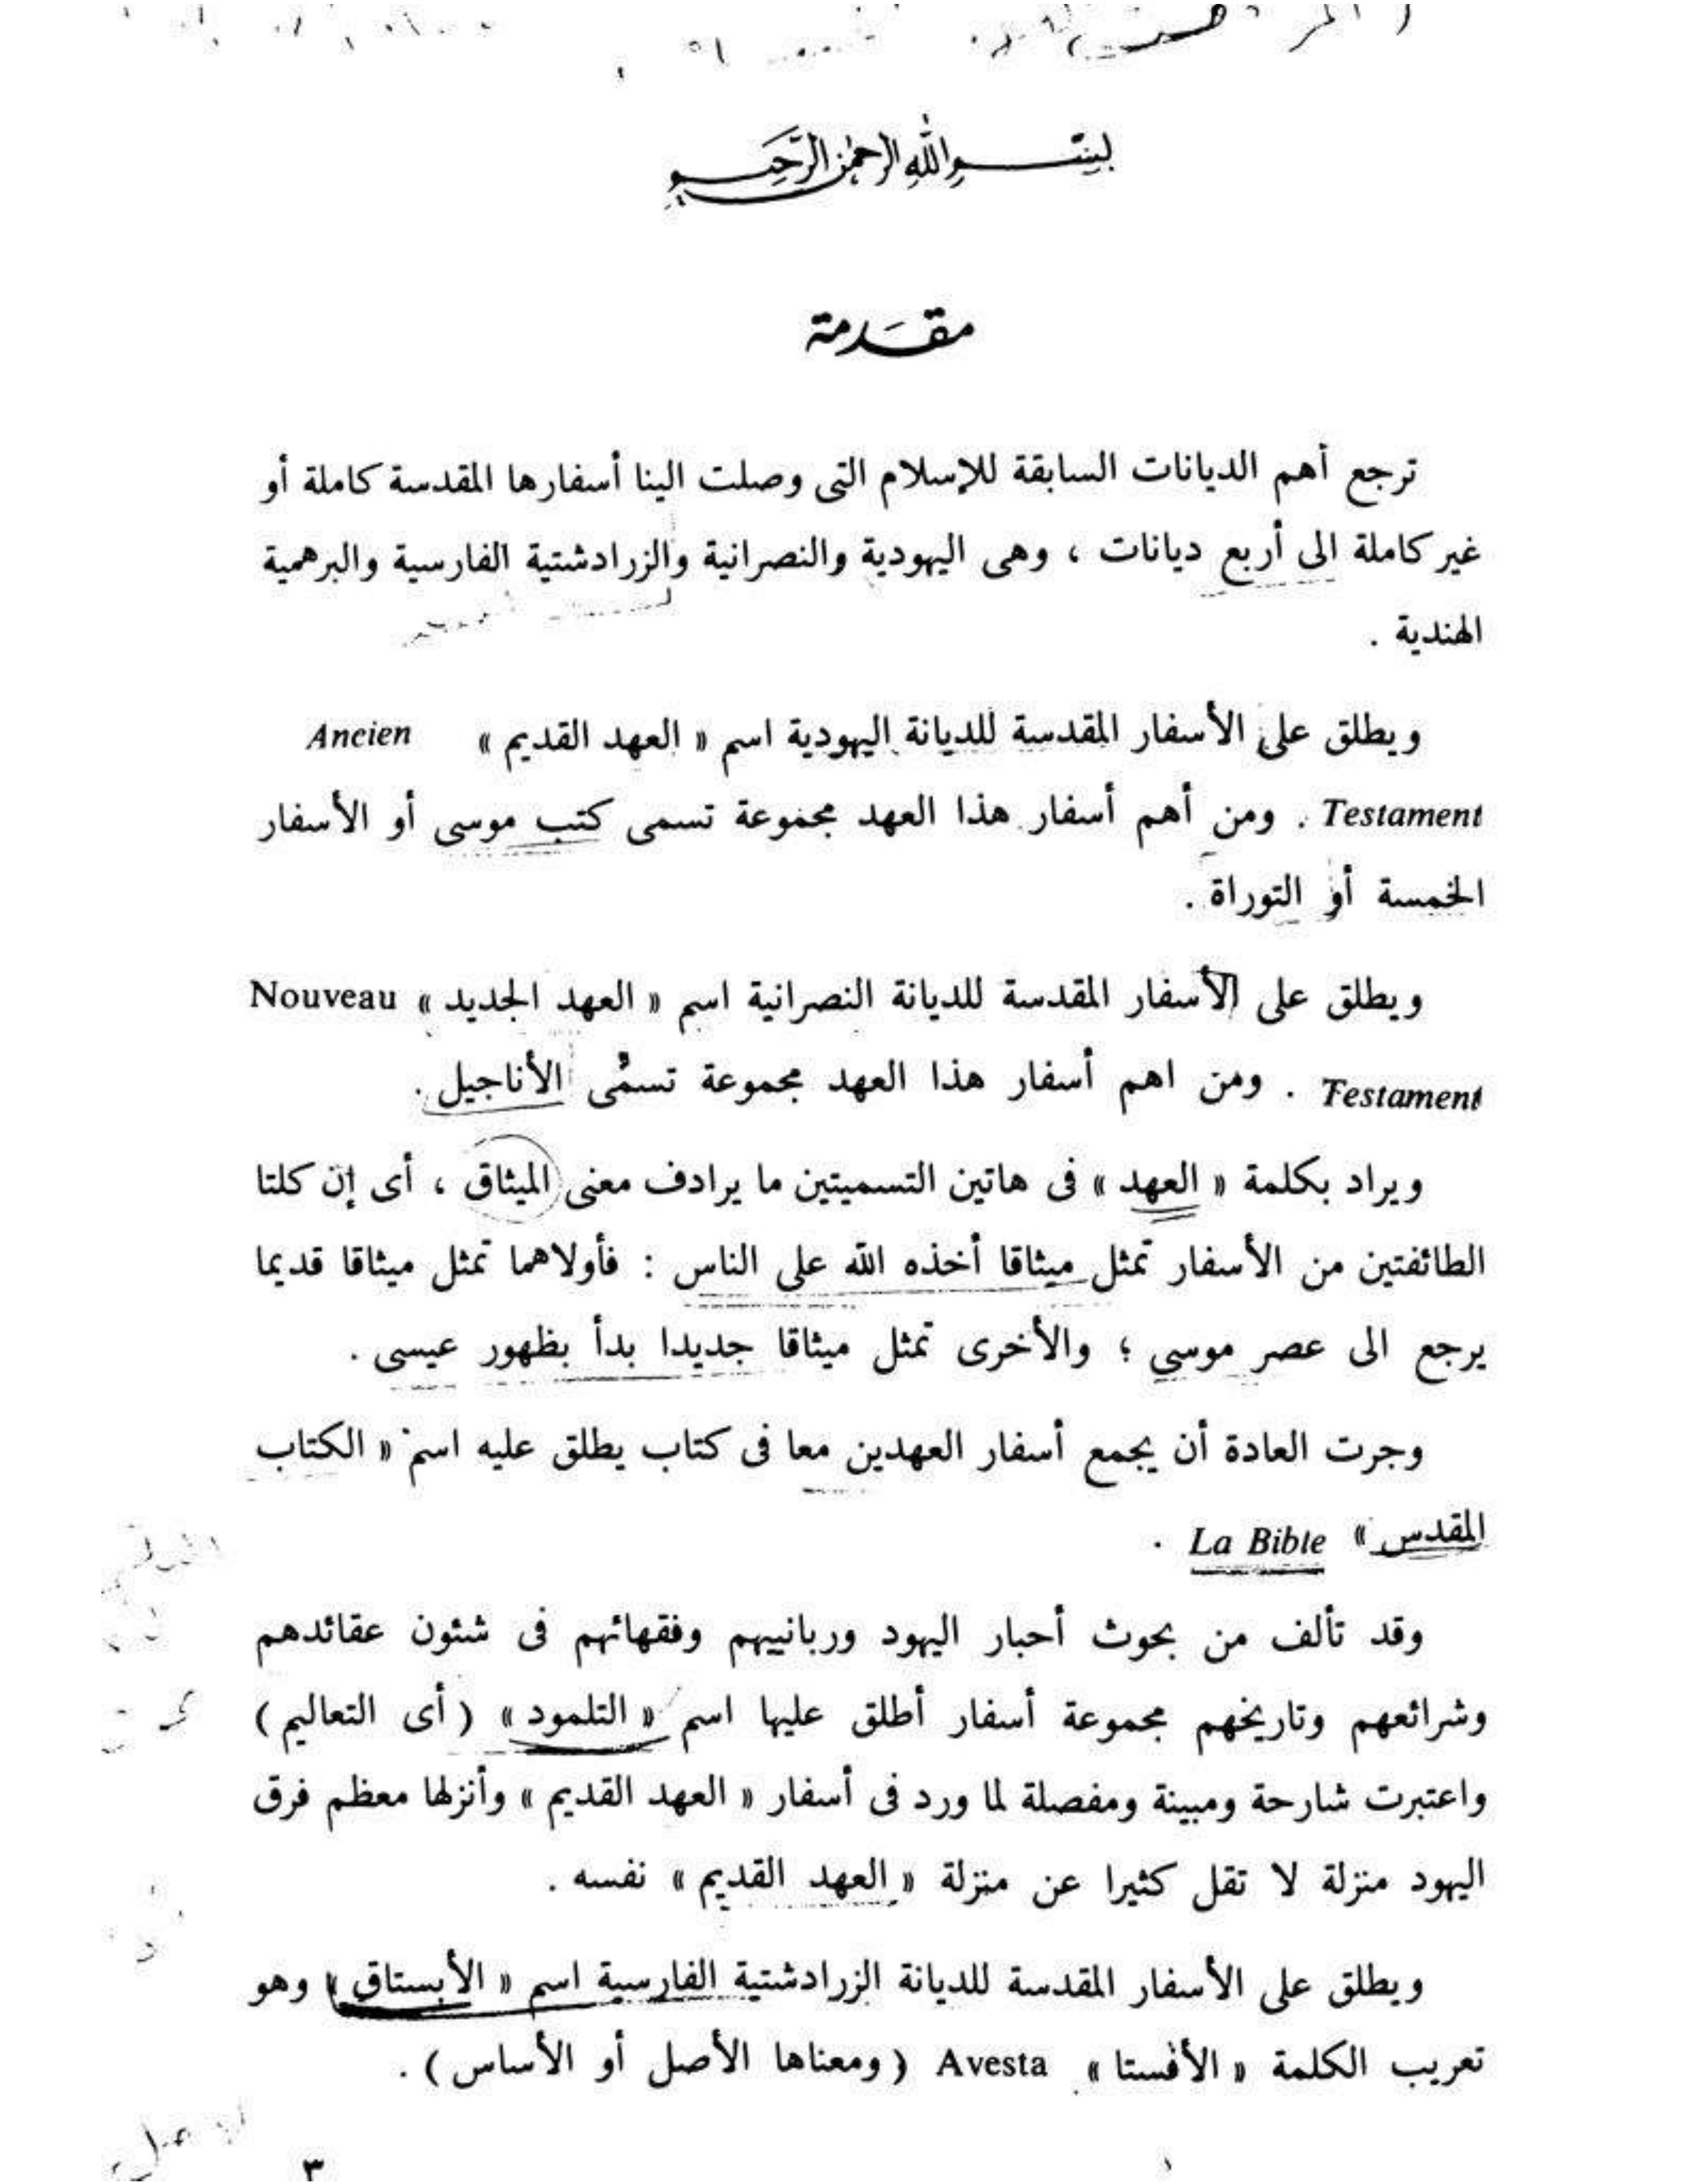 بِسْمِ اللهِ الرَّحْمٰنِ الرَّحِيمِ
مقَدمة
ترجع أهم الديانات السابقة للإسلام التى وصلت الينا أسفارها المقدسة كاملة أو
غير كاملة الى أربع ديانات ، وهى اليهودية والنصرانية والزرادشتية الفارسية والبرهمية
الهندية .
ويطلق على الأسفار المقدسة للديانة اليهودية اسم « العهد القديم » Ancien
Testament . ومن أهم أسفار هذا العهد مجموعة تسمى كتب موسى أو الأسفار
الخمسة أو التوراة .
ويطلق على الأسفار المقدسة للديانة النصرانية اسم « العهد الجديد » Nouveau
Testament . ومن اهم أسفار هذا العهد مجموعة تسمُى الأناجيل .
ويراد بكلمة « العهد » فى هاتين التسميتين ما يرادف معنى الميثاق ، أى إن كلتا
الطائفتين من الأسفار تمثل ميثاقا أخذه الله على الناس : فأولاهما تمثل ميثاقا قديما
يرجع الى عصر موسى ؛ والأخرى تمثل ميثاقا جديدا بدأ بظهور عيسى .
وجرت العادة أن يجمع أسفار العهدين معا فى كتاب يطلق عليه اسم « الكتاب
المقدس » La Bible .
وقد تألف من بحوث أحبار اليهود وربانييهم وفقهائهم فى شئون عقائدهم
وشرائعهم وتاريخهم مجموعة أسفار أطلق عليها اسم « التلمود » ( أى التعاليم )
واعتبرت شارحة ومبينة ومفصلة لما ورد فى أسفار « العهد القديم » وأنزلها معظم فرق
اليهود منزلة لا تقل كثيرا عن منزلة « العهد القديم » نفسه .
ويطلق على الأسفار المقدسة للديانة الزرادشتية الفارسية اسم « الأبستاق » وهو
تعريب الكلمة « الأفستا » Avesta ( ومعناها الأصل أو الأساس ) .
٣